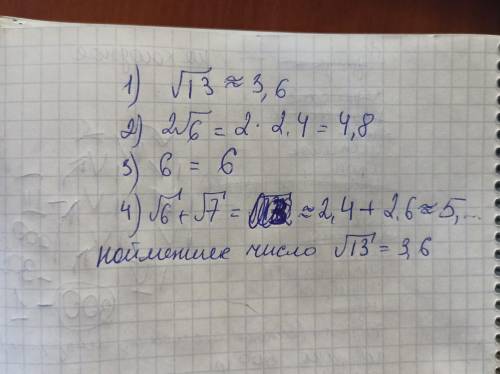 1) √13 ≈ 3,6
2) 2√6 = 2 · 2,4 = 4,8
3) 6 = 6
4) √6 + √7 = ≈ 2,4 + 2,6 ≈ 5,...
наименшее число √13 = 3,6